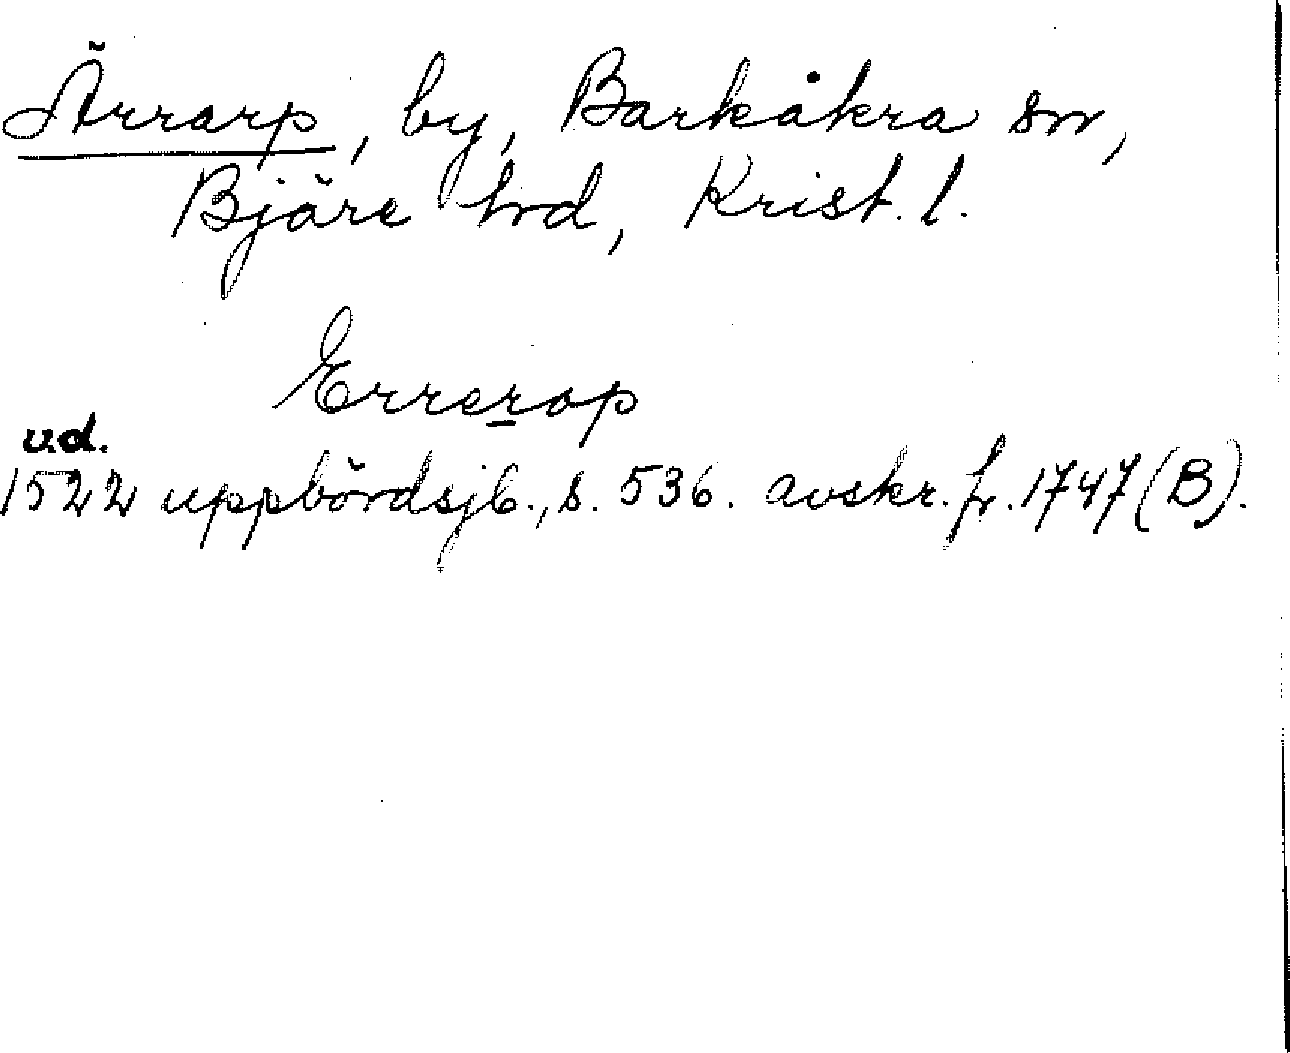 Ärrarp, by, Barkåkra sn,
Bjäre hrd, Krist. l.
Errerop
u.d.
1522 uppbördsjb., s. 536. avskr. fr. 1747 (B).